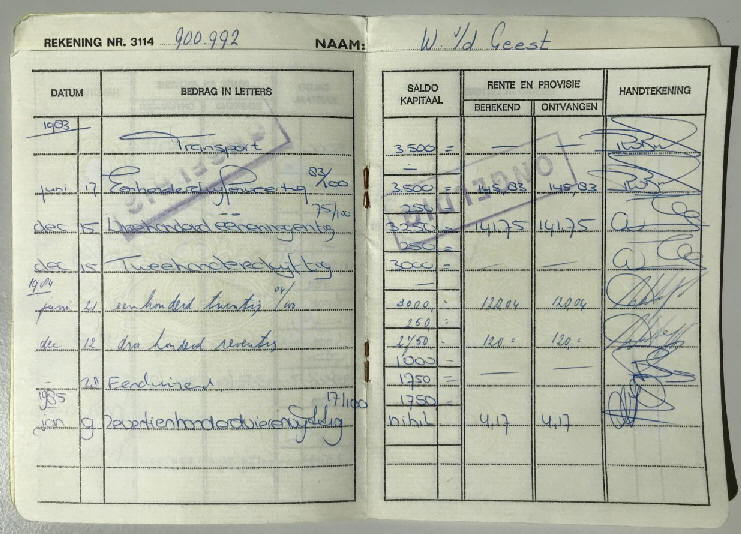 REKENING NR. 3114 900.992 NAAM: W v/d Geest
DATUM BEDRAG IN LETTERS SALDO KAPITAAL RENTE EN PROVISIE HANDTEKENING
BEREKEND ONTVANGEN
1983
Transport 3500 = — —
—
juni 17 83/100 3500 = 145,83 145,83
75/100 250
dec 15 3250 = 141,75 141,75
250 =
dec 15 Tweehonderdvijftig 3000 = — —
1984 —
juni 21 eenhonderd twintig 04/100 3000 = 120,04 120,04
250 =
dec 12 drie honderd zeventig 2750 = 120,= 120,=
1000 =
- 28 Eenduizend 1750 = — —
1985 17/100 1750 =
jan 9 Zeventienhonderdvierenvijftig nihil 4,17 4,17
ONGELDIG
ONGELDIG